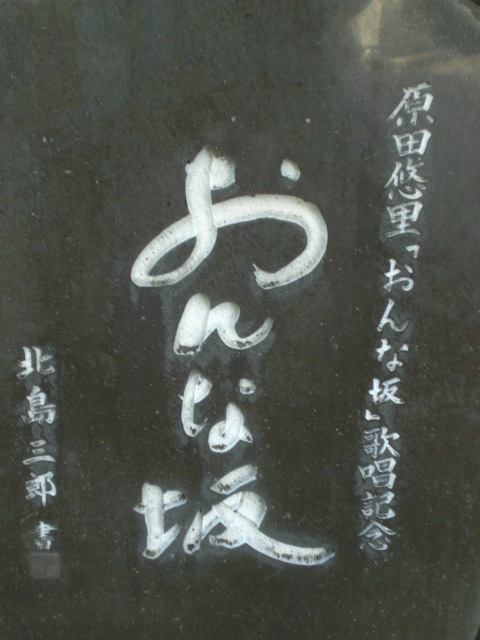 原田悠里「おんな坂」歌唱記念
おんな坂
北島三郎 書